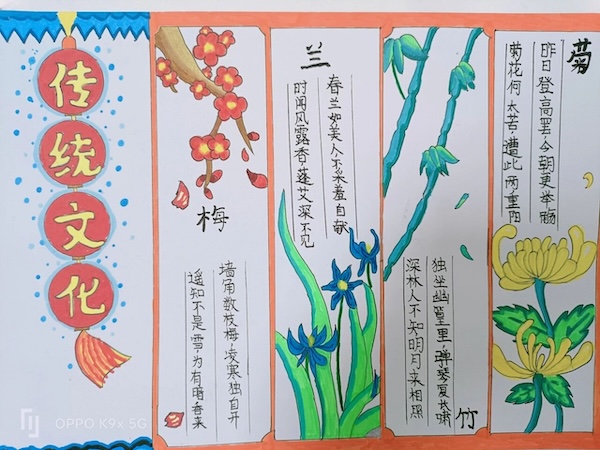 传统文化
梅
墙角数枝梅,凌寒独自开
遥知不是雪,为有暗香来
兰
春兰如美人不采羞自献
时闻风露香蓬艾深不见
独坐幽篁里,弹琴复长啸
深林人不知明月来相照
竹
菊
昨日登高罢今朝更举觞
菊花何太苦遭此两重阳
OPPO K9x 5G